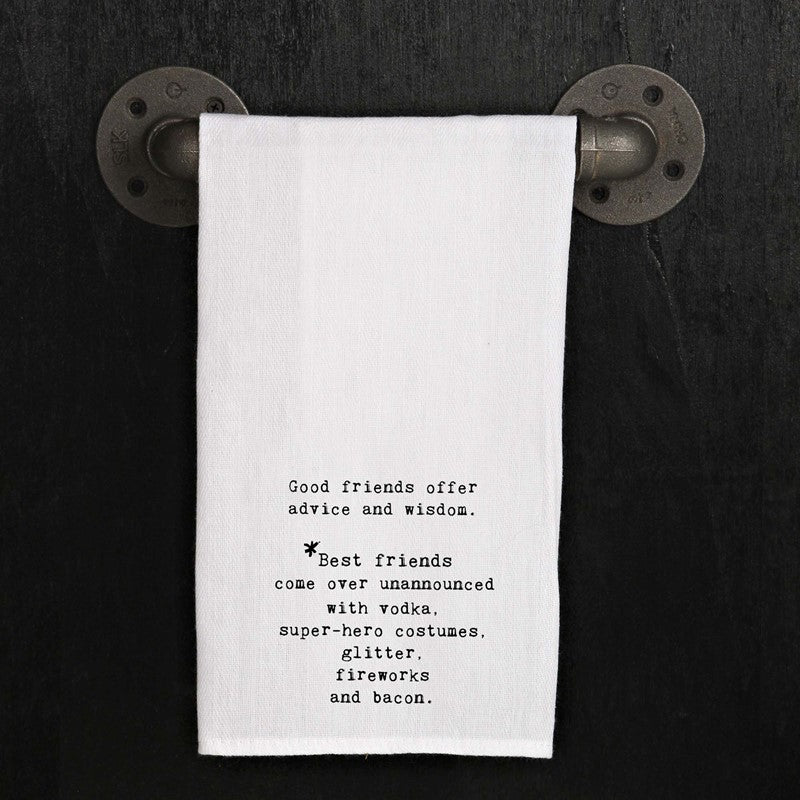 Good friends offer
advice and wisdom.
*Best friends
come over unannounced
with vodka,
super-hero costumes,
glitter,
fireworks
and bacon.